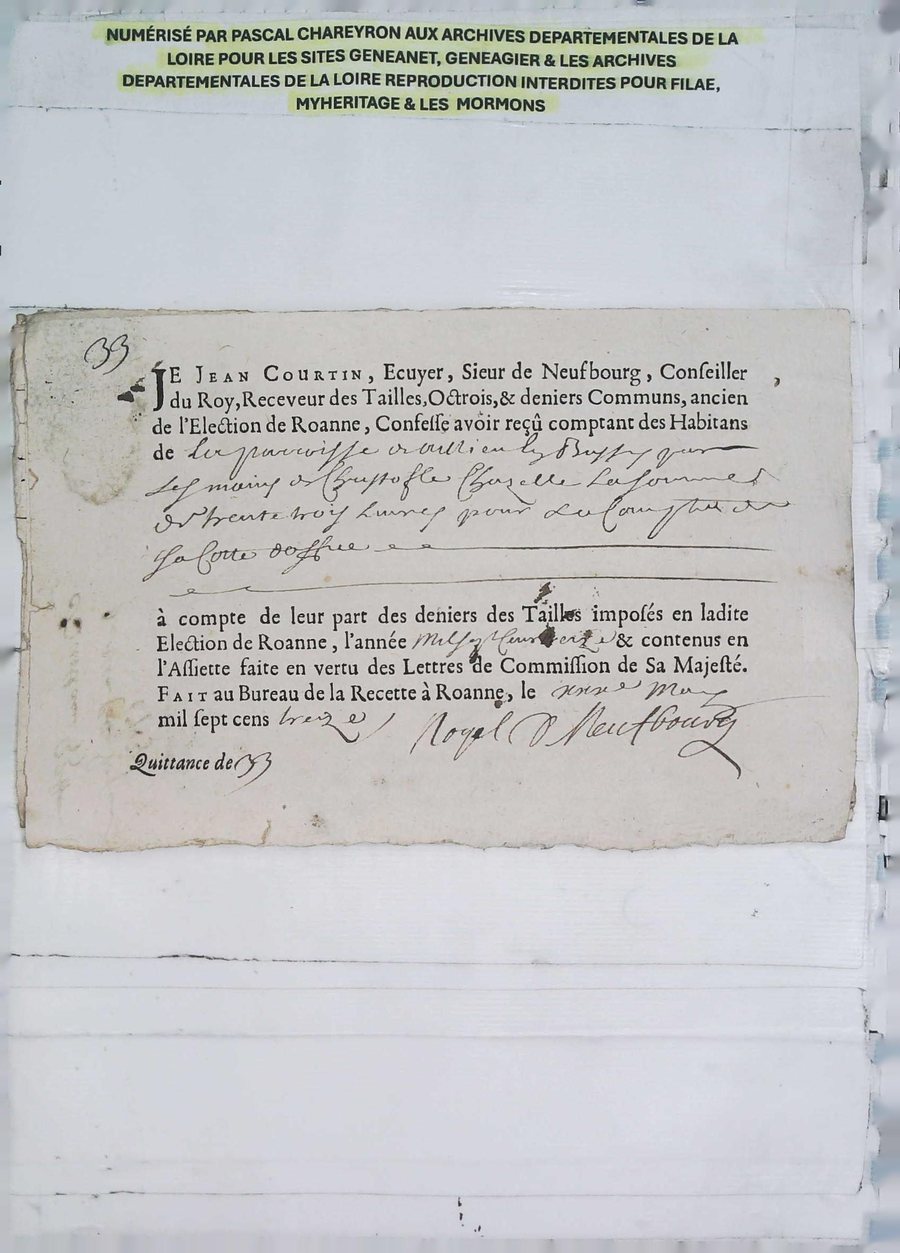 NUMÉRISÉ PAR PASCAL CHAREYRON AUX ARCHIVES DEPARTEMENTALES DE LA
LOIRE POUR LES SITES GENEANET, GENEAGIER & LES ARCHIVES
DEPARTEMENTALES DE LA LOIRE REPRODUCTION INTERDITES POUR FILAE,
MYHERITAGE & LES MORMONS
33
JE JEAN COURTIN, Ecuyer, Sieur de Neufbourg, Conseiller
du Roy, Receveur des Tailles, Octrois, & deniers Communs, ancien
de l'Election de Roanne, Confesse avoir reçû comptant des Habitans
de La parroisse par
Les mains de Christofle Chazelle La somme
de trente trois Livres pour
sa Cotte doffice
à compte de leur part des deniers des Tailles imposés en ladite
Election de Roanne, l'année Mil sept Cent treize & contenus en
l'Assiette faite en vertu des Lettres de Commission de Sa Majesté.
FAIT au Bureau de la Recette à Roanne, le
mil sept cens treize
Quittance de 33